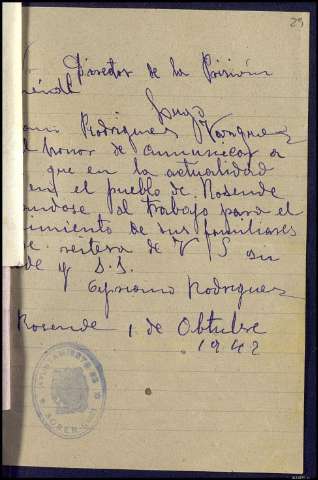 29
Director de la Prisión
Lugo
Rodrigues Vazquez
honor de comunicar a
que en la actualidad
en el pueblo de Rosende
andose al trabajo para el
imiento de sus familiares
e reitera de V S su
de y S.S.
Cypriano Rodriguez
Rosende 1 de Obtubre
1942
AYUNTAMIENTO DE
SOBER